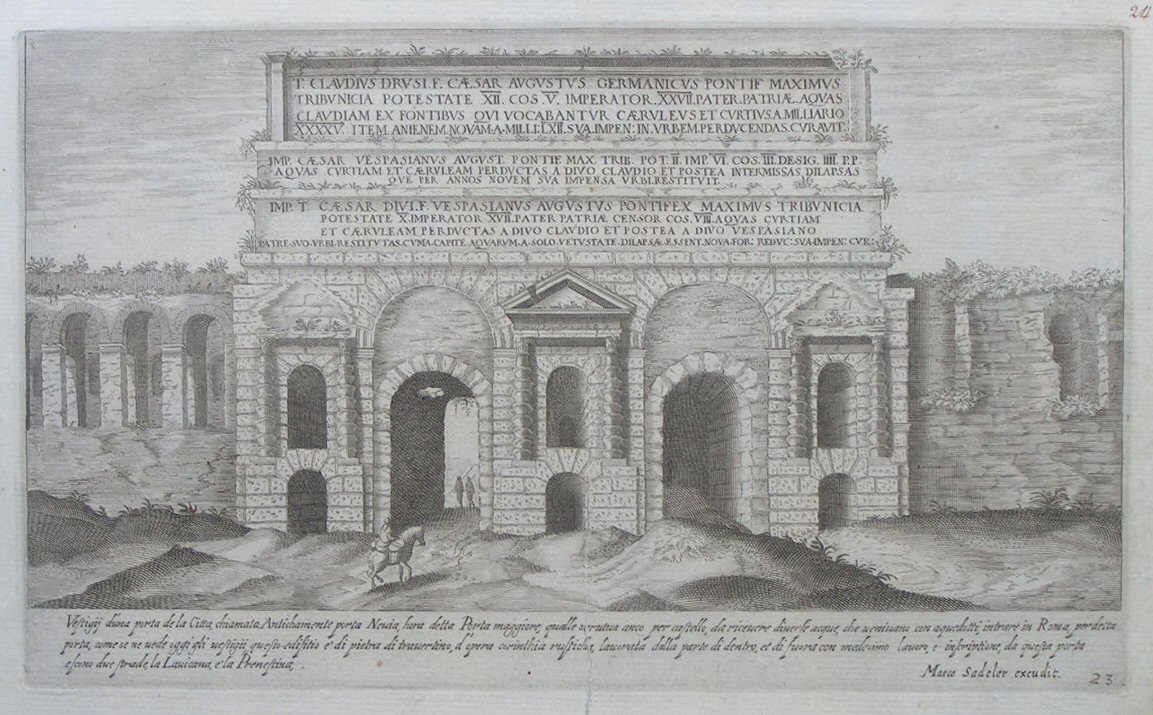 24
T. CLAVDIVS DRVSI. F. CÆSAR AVGVSTVS GERMANICVS PONTIF MAXIMVS
TRIBVNICIA POTESTATE XII. COS. V. IMPERATOR. XXVII. PATER. PATRIÆ. AQVAS
CLAVDIAM EX FONTIBVS QVI VOCABANTVR CÆRVLEVS ET CVRTIVS. A. MILLIARIO
XXXXV. ITEM ANIENEM. NOVAM. A. MILLI: LXII. SVA. IMPEN: IN. VRBEM. PERDVCENDAS. CVRAVIT.
IMP. CÆSAR VESPASIANVS AVGVST. PONTIF MAX. TRIB. POT. II. IMP. VI. COS. III. DESIG. IIII. P.P.
AQVAS CVRTIAM ET CÆRVLEAM PERDVCTAS A DIVO CLAVDIO ET POSTEA INTERMISSAS DILAPSAS
QVE PER ANNOS NOVEM SVA IMPENSA VRBI. RESTITVIT.
IMP. T. CÆSAR DIVI. F. VESPASIANVS AVGVSTVS PONTIFEX MAXIMVS TRIBVNICIA
POTESTATE X. IMPERATOR XVII. PATER PATRIÆ CENSOR COS. VIII. AQVAS CVRTIAM
ET CÆRVLEAM PERDVCTAS A DIVO CLAVDIO ET POSTEA A DIVO VESPASIANO
PATRE. SVO. VRBI. RESTITVTAS. CVM. A. CAPITE. AQVARVM. A. SOLO. VETVSTATE. DILAPSÆ. ESSENT. NOVA. FOR: REDVC: SVA. IMPEN: CVR:
Vestigij d'una porta de la Citta, chiamata Antichamente porta Nevia, hora detta Porta maggiore, qualle serviva anco per castello, da ricevere diverse acque, che venivano con aquedotti, intrare in Roma, per detta
porta, come si ne vede oggi gli vestigij questo edifitio è di pietra di travertino, d'opera corinthia rusticha, lavorata dalla parte di dentro, et di fuora con medesimo lavoro, e inscriptione, da questa porta
escono due strade, la Lavicana, e la Prenestina.
Marco Sadeler excudit.
23